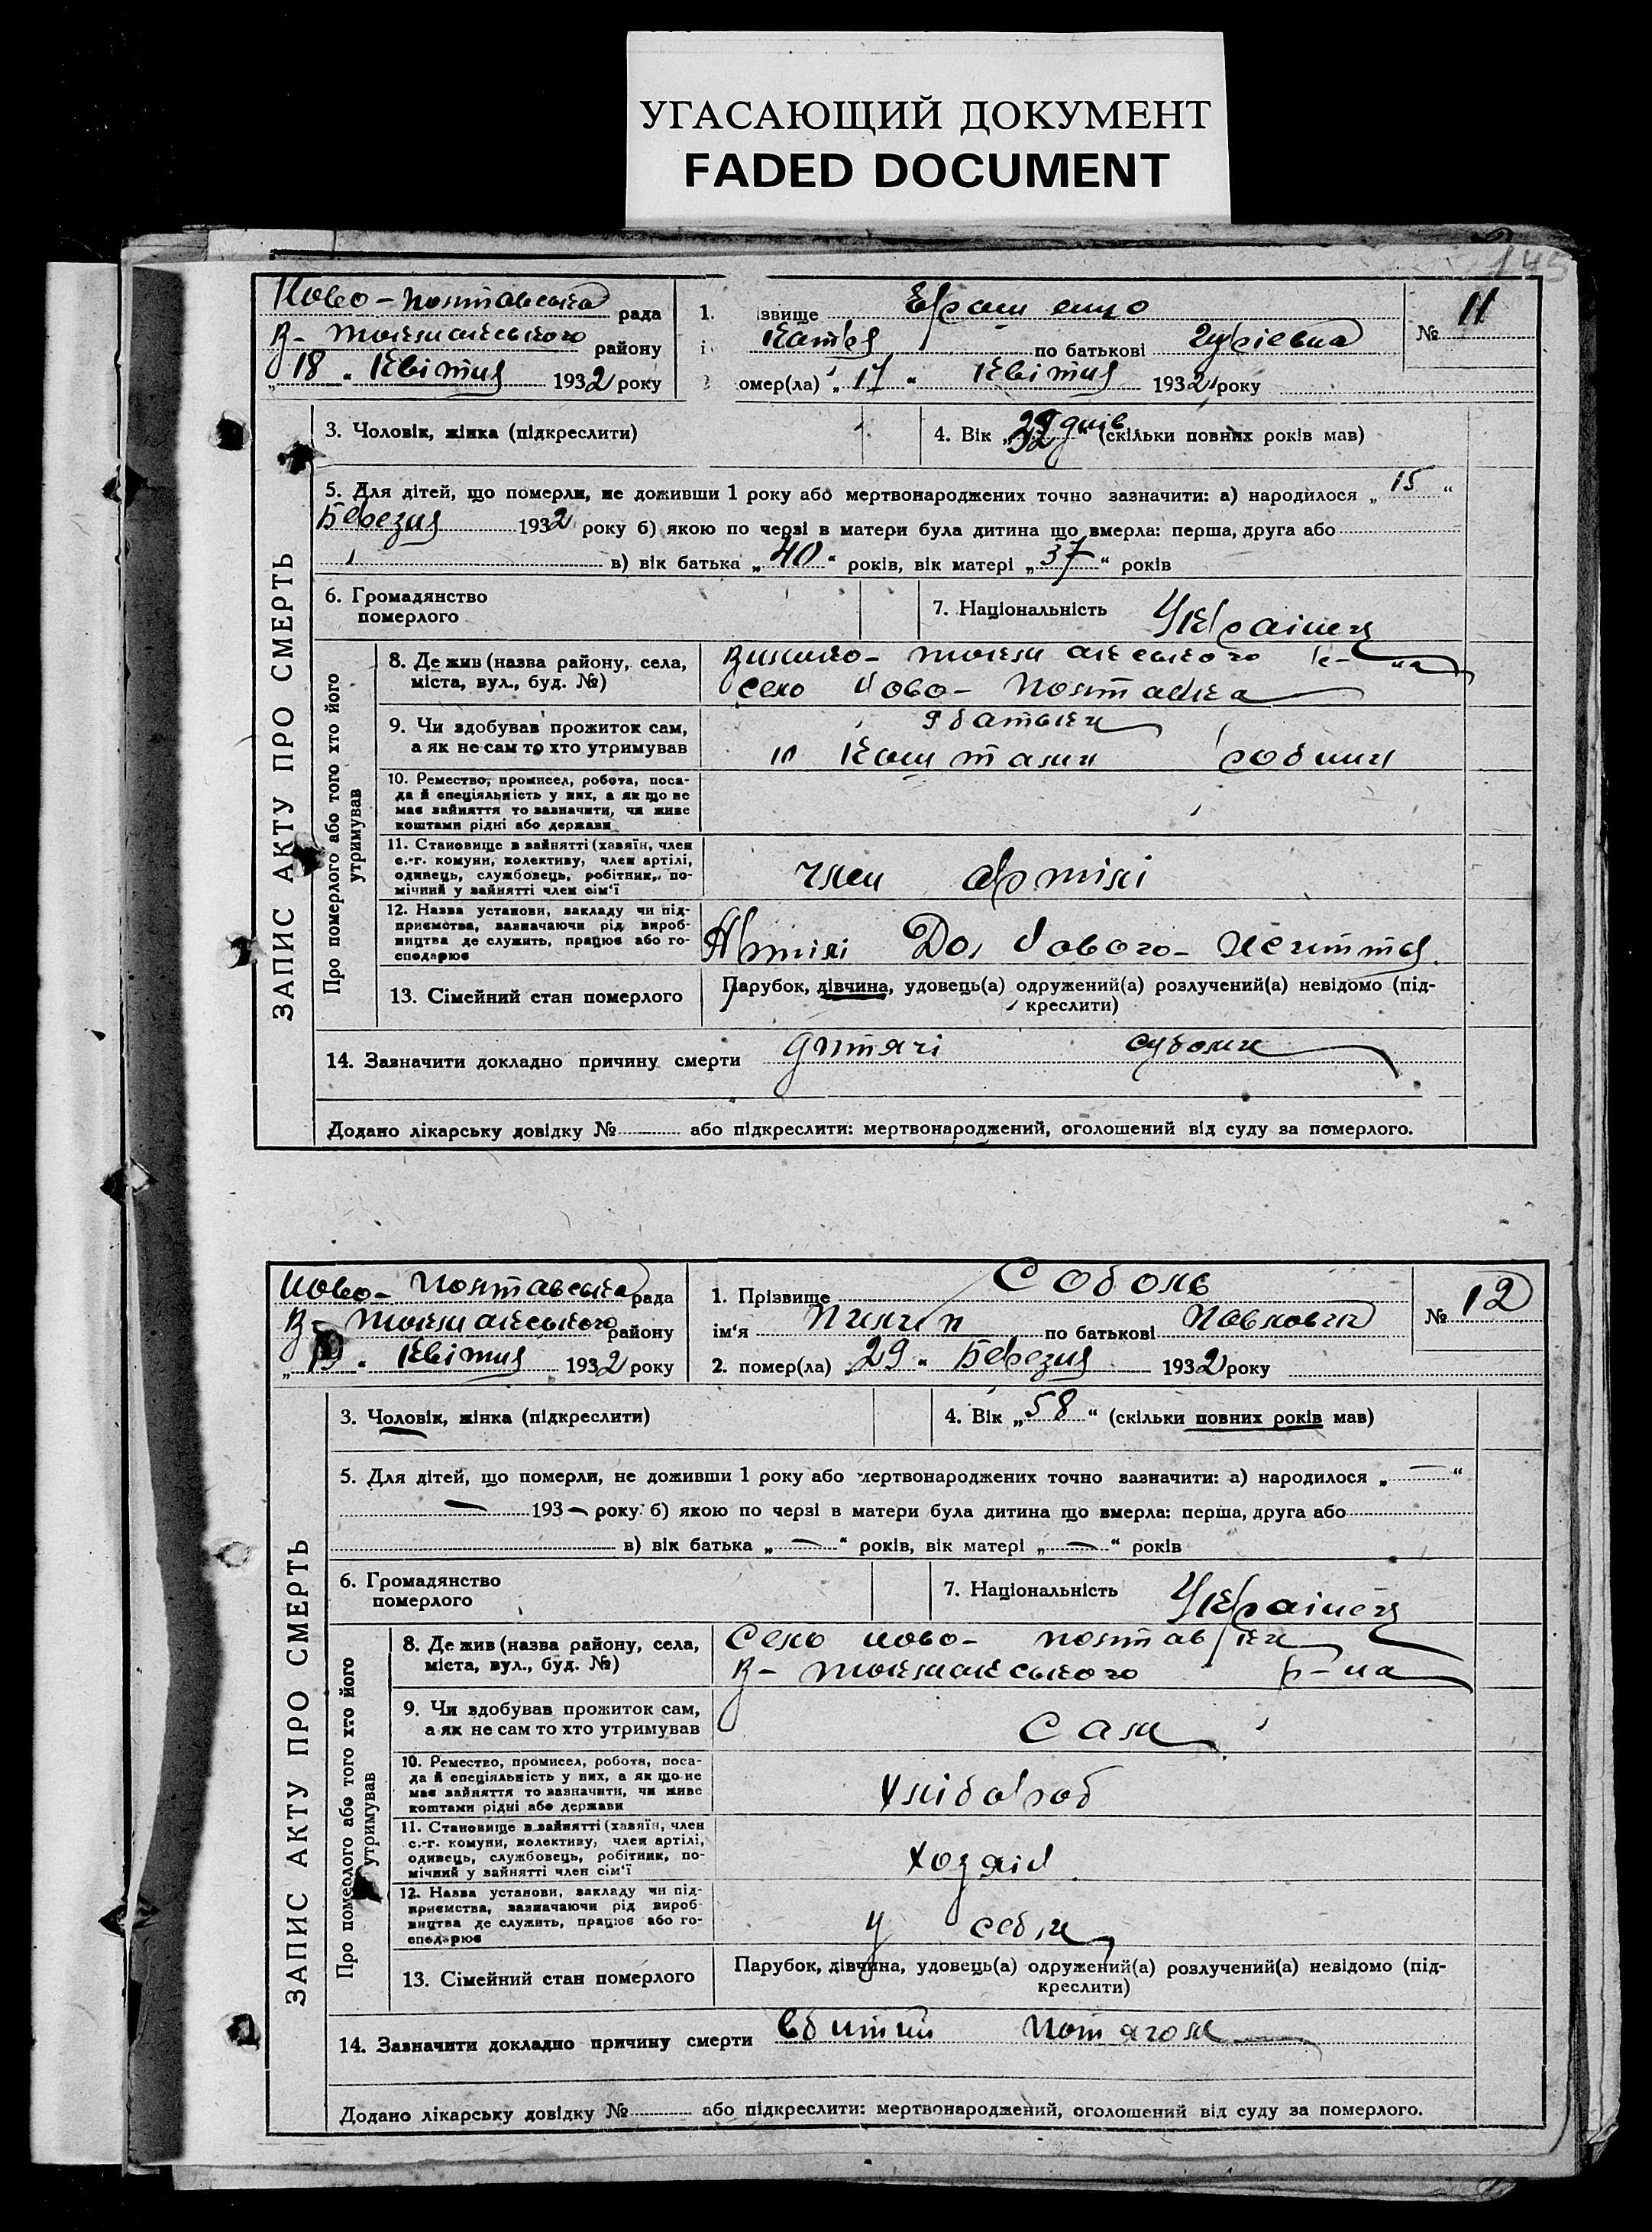 УГАСАЮЩИЙ ДОКУМЕНТ
FADED DOCUMENT
145
Ново-полтавська рада
В-токмакського району
„18“ Квітня 1932 року
1. ізвище
і Катря по батькові
2 омер(ла) „17“ Квітня 1932 року
№ 11
ЗАПИС АКТУ ПРО СМЕРТЬ
3. Чоловік, жінка (підкреслити)
4. Вік „32 днів“ (скільки повних років мав)
5. Для дітей, що померли, не доживши 1 року або мертвонароджених точно зазначити: а) народилося „15“
Березня 1932 року б) якою по черзі в матери була дитина що вмерла: перша, друга або
в) вік батька „40“ років, вік матері „37“ років
6. Громадянство
померлого
7. Національність Українець
Про померлого або того хто його
утримував
8. Де жив (назва району, села,
міста, вул., буд. №)
Велико-токмакського р-на
село Ново-Полтавка
9. Чи здобував прожиток сам,
а як не сам то хто утримував
батьки
коштами родини
10. Ремество, промисел, робота, поса-
да й спеціяльність у них, а як що не
має зайняття то зазначити, чи живе
коштами рідні або держави
11. Становище в зайнятті (хазяїн, член
с.-г. комуни, колективу, член артілі,
одинець, службовець, робітник, по-
мічний у зайнятті член сім'ї
член артілі
12. Назва установи, закладу чи під-
приємства, зазначаючи рід вироб-
ництва де служить, працює або го-
сподарює
Артілі До Нового-Життя
13. Сімейний стан померлого
Парубок, дівчина, удовець(а) одружений(а) розлучений(а) невідомо (під-
креслити)
14. Зазначити докладно причину смерти дитячі судоми
Додано лікарську довідку № або підкреслити: мертвонароджений, оголошений від суду за померлого.
Ново-Полтавська рада
В-токмакського району
„19“ Квітня 1932 року
1. Прізвище Соболь
ім'я Пилип по батькові Павлович
2. помер(ла) „29“ Березня 1932 року
№ 12
ЗАПИС АКТУ ПРО СМЕРТЬ
3. Чоловік, жінка (підкреслити)
4. Вік „58“ (скільки повних років мав)
5. Для дітей, що померли, не доживши 1 року або мертвонароджених точно зазначити: а) народилося „—“
— 193— року б) якою по черзі в матери була дитина що вмерла: перша, друга або
в) вік батька „—“ років, вік матері „—“ років
6. Громадянство
померлого
7. Національність Українець
Про померлого або того хто його
утримував
8. Де жив (назва району, села,
міста, вул., буд. №)
Село ново-полтавки
В-токмакського р-на
9. Чи здобував прожиток сам,
а як не сам то хто утримував
сам
10. Ремество, промисел, робота, поса-
да й спеціяльність у них, а як що не
має зайняття то зазначити, чи живе
коштами рідні або держави
хлібороб
11. Становище в зайнятті (хазяїн, член
с.-г. комуни, колективу, член артілі,
одинець, службовець, робітник, по-
мічний у зайнятті член сім'ї
хозяїн
12. Назва установи, закладу чи під-
приємства, зазначаючи рід вироб-
ництва де служить, працює або го-
сподарює
у себе
13. Сімейний стан померлого
Парубок, дівчина, удовець(а) одружений(а) розлучений(а) невідомо (під-
креслити)
14. Зазначити докладно причину смерти вбитий потягом
Додано лікарську довідку № або підкреслити: мертвонароджений, оголошений від суду за померлого.